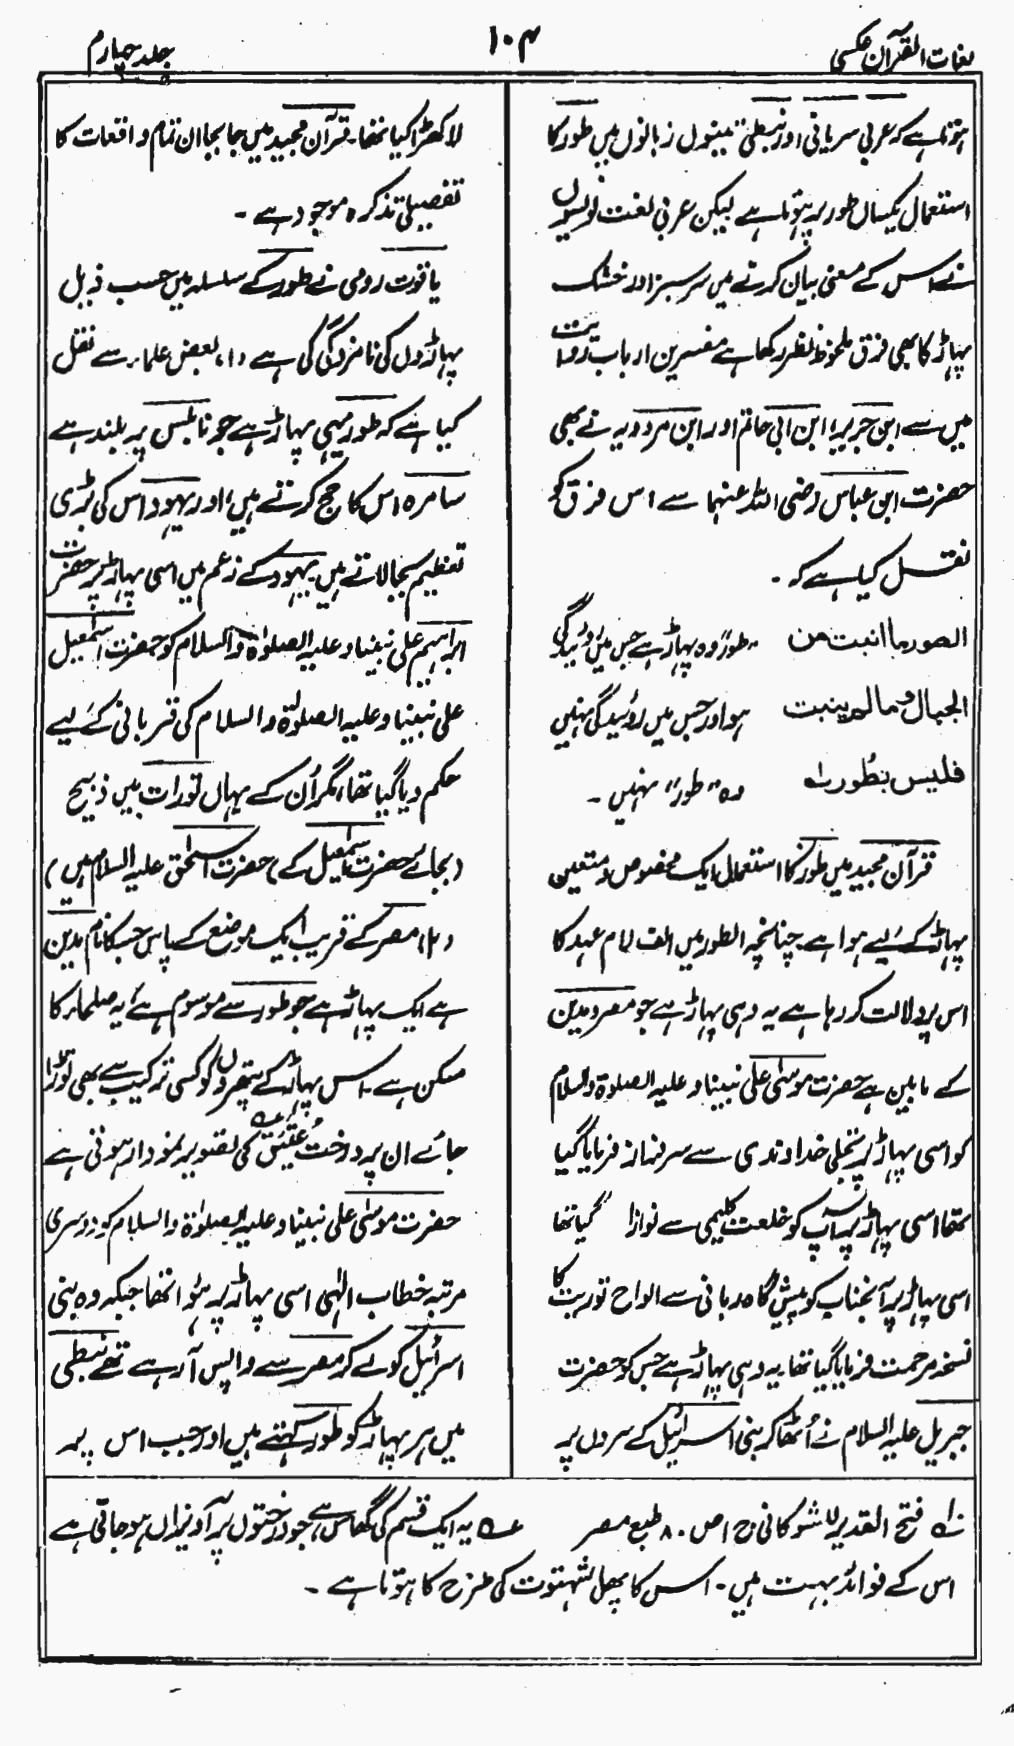 لغات القرآن عکسی
۱۰۴
جلد چہارم
ہوتا ہے کہ عربی سریانی اور نبطی تینوں زبانوں میں طور کا
استعمال یکساں طور پر ہوتا ہے لیکن عربی لغت نویسوں
نے اس کے معنی بیان کرنے میں سرسبز اور خشک
پہاڑ کا بھی فرق ملحوظ نظر رکھا ہے مفسرین ارباب روایت
میں سے ابن جریر، ابن ابی حاتم اور ابن مردویہ نے بھی
حضرت ابن عباس رضی اللہ عنہما سے اس فرق کو
نقل کیا ہے کہ ۔
الصور ما انبت من "طور" وہ پہاڑ ہے جس میں روئیدگی
الجبال وما لم ینبت ہو اور جس میں روئیدگی نہیں
فلیس بطور لہ وہ "طور" نہیں ۔
قرآن مجید میں طور کا استعمال ایک مخصوص و متعین
پہاڑ کے لیے ہوا ہے چنانچہ الطور میں الف لام عہد کا
اس پر دلالت کر رہا ہے یہ وہی پہاڑ ہے جو مصر و مدین
کے مابین ہے حضرت موسیٰ علی نبینا و علیہ الصلوۃ والسلام
کو اسی پہاڑ پر تجلی خداوندی سے سرفراز فرمایا گیا
تھا اسی پہاڑ پر آپ کو خلعت کلیمی سے نوازا گیا تھا
اسی پہاڑ پر آنجناب کو پیش گاہ ربانی سے الواح توریت کا
نسخہ مرحمت فرمایا گیا تھا یہ وہی پہاڑ ہے جس کو حضرت
جبریل علیہ السلام نے اُٹھا کر بنی اسرائیل کے سروں پر
لا کھڑا کیا تھا۔ قرآن مجید میں جابجا ان تمام واقعات کا
تفصیلی تذکرہ موجود ہے ۔
یاقوت رومی نے طور کے سلسلہ میں حسب ذیل
پہاڑوں کی نامزدگی کی ہے (۱) بعض علماء سے نقل
کیا ہے کہ طور یہی پہاڑ ہے جو نابلس پر بلند ہے
سامرہ اس کا حج کرتے ہیں، اور یہود اس کی بڑی
تعظیم بجالاتے ہیں۔ یہود کے زعم میں اسی پہاڑ پر حضرت
ابراہیم علی نبینا و علیہ الصلوٰۃ والسلام کو حضرت اسمٰعیل
علی نبینا و علیہ الصلوٰۃ والسلام کی قربانی کے لیے
حکم دیا گیا تھا، مگر اُن کے یہاں تورات میں ذبیح
(بجائے حضرت اسمٰعیل کے) حضرت اسحٰق علیہ السلام ہیں)
(۲) مصر کے قریب ایک موضع کے پاس جس کا نام مدین
ہے ایک پہاڑ ہے جو طور سے موسوم ہے، یہ صلحاء کا
مسکن ہے۔ اس پہاڑ کے پتھروں کو کسی ترکیب سے بھی توڑا
جائے ان پر درخت عُلَّیق ؂۲ کی تصویر نمودار ہوتی ہے
حضرت موسیٰ علی نبینا و علیہ الصلوٰۃ والسلام کو دوسری
مرتبہ خطاب الٰہی اسی پہاڑ پر ہوا تھا جبکہ وہ بنی
اسرائیل کو لے کر مصر سے واپس آ رہے تھے نبطی
میں ہر پہاڑ کو طور کہتے ہیں اور جب اس پر
؂۱ فتح القدیر للشوکانی ج ۱ ص ۸۰ طبع مصر ؂۲ یہ ایک قسم کی گھاس ہے جو درختوں پر آویزاں ہو جاتی ہے
اس کے فوائد بہت ہیں ۔ اس کا پھل شہتوت کی طرح کا ہوتا ہے ۔